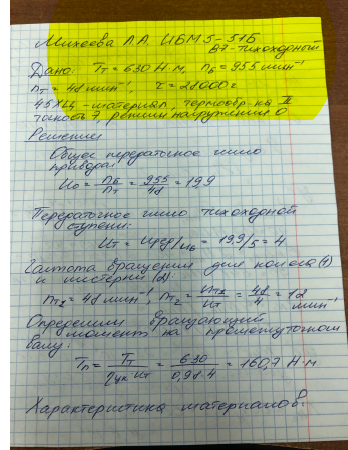 Михеева Л.А. ИБМ5-51Б
В7-тихоходный
Дано: Tт = 630 Н·м, nб = 955 мин⁻¹
nт = 48 мин⁻¹, τ = 28000 ч
45ХЦ - материал, термообр-ка II
точность 7, режим нагружения 0
Решение
Общее передаточное число
привода:
U₀ = nб/nт = 955/48 = 19,9
Передаточное число тихоходной
ступени:
Uт = Uред/Uб = 19.9/5 = 4
Частота вращения для колеса (1)
и шестерни (2):
nт2 = 48 мин⁻¹, nт2 = nт2/Uт = 48/4 = 12 мин⁻¹
Определим вращающий
момент на промежуточном
валу:
Tп = Tт/ηук Uт = 630/0,98·4 = 160,7 Н·м
Характеристика материалов: